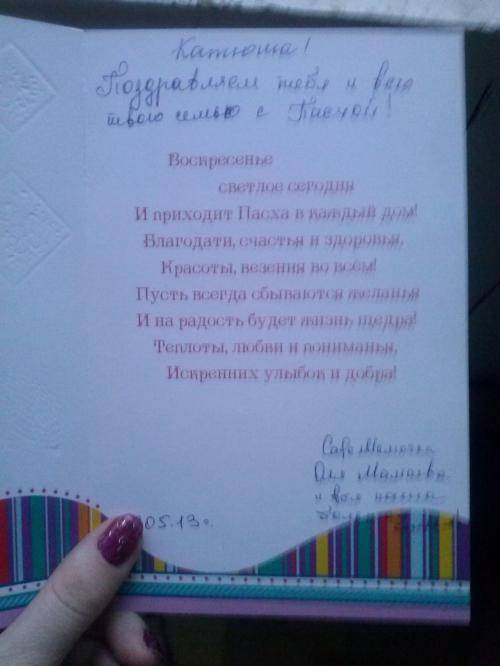 Катюша!
Поздравляем тебя и всю
твою семью с Пасхой!
Воскресенье
светлое сегодня
И приходит Пасха в каждый дом!
Благодати, счастья и здоровья,
Красоты, везения во всём!
Пусть всегда сбываются желанья
И на радость будет жизнь щедра!
Теплоты, любви и пониманья,
Искренних улыбок и добра!
Оля
и вся наша
05.13 г.